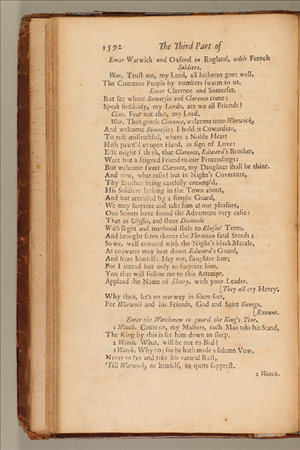 1592 The Third Part of
Enter Warwick and Oxford in England, with French
Soldiers.
War. Trust me, my Lord, all hitherto goes well,
The Common People by numbers swarm to us.
Enter Clarence and Somerset.
But see where Somerset and Clarence come;
Speak suddenly, my Lords, are we all Friends?
Clar. Fear not that, my Lord.
War. Then gentle Clarence, welcome unto Warwick,
And welcome Somerset: I hold it Cowardize,
To rest mistrustful, where a Noble Heart
Hath pawn'd an open Hand, in sign of Love;
Else might I think, that Clarence, Edward's Brother,
Were but a feigned Friend to our Proceedings:
But welcome sweet Clarence, my Daughter shall be thine.
And now, what rests? but in Night's Coverture,
Thy Brother being carelesly encamp'd,
His Soldiers lurking in the Town about,
And but attended by a simple Guard,
We may surprize and take him at our pleasure,
Our Scouts have found the Adventure very easie:
That as Ulysses, and stout Diomede
With slight and manhood stole to Rhesus' Tents,
And brought from thence the Thracian fatal Steeds;
So we, well cover'd with the Night's black Mantle,
At unawares may beat down Edward's Guard,
And seize himself: I say not, slaughter him,
For I intend but only to surprize him.
You that will follow me to this Attempt,
Applaud the Name of Henry, with your Leader.
[They all cry Henry.
Why then, let's on our way in silent sort,
For Warwick and his Friends, God and Saint George.
[Exeunt.
Enter the Watchmen to guard the King's Tent.
1 Watch. Come on, my Masters, each Man take his Stand,
The King by this is set him down to sleep.
2 Watch. What, will he not to Bed?
1 Watch. Why no; for he hath made a solemn Vow,
Never to lye and take his natural Rest,
'Till Warwick, or himself, be quite supprest.
2 Watch.